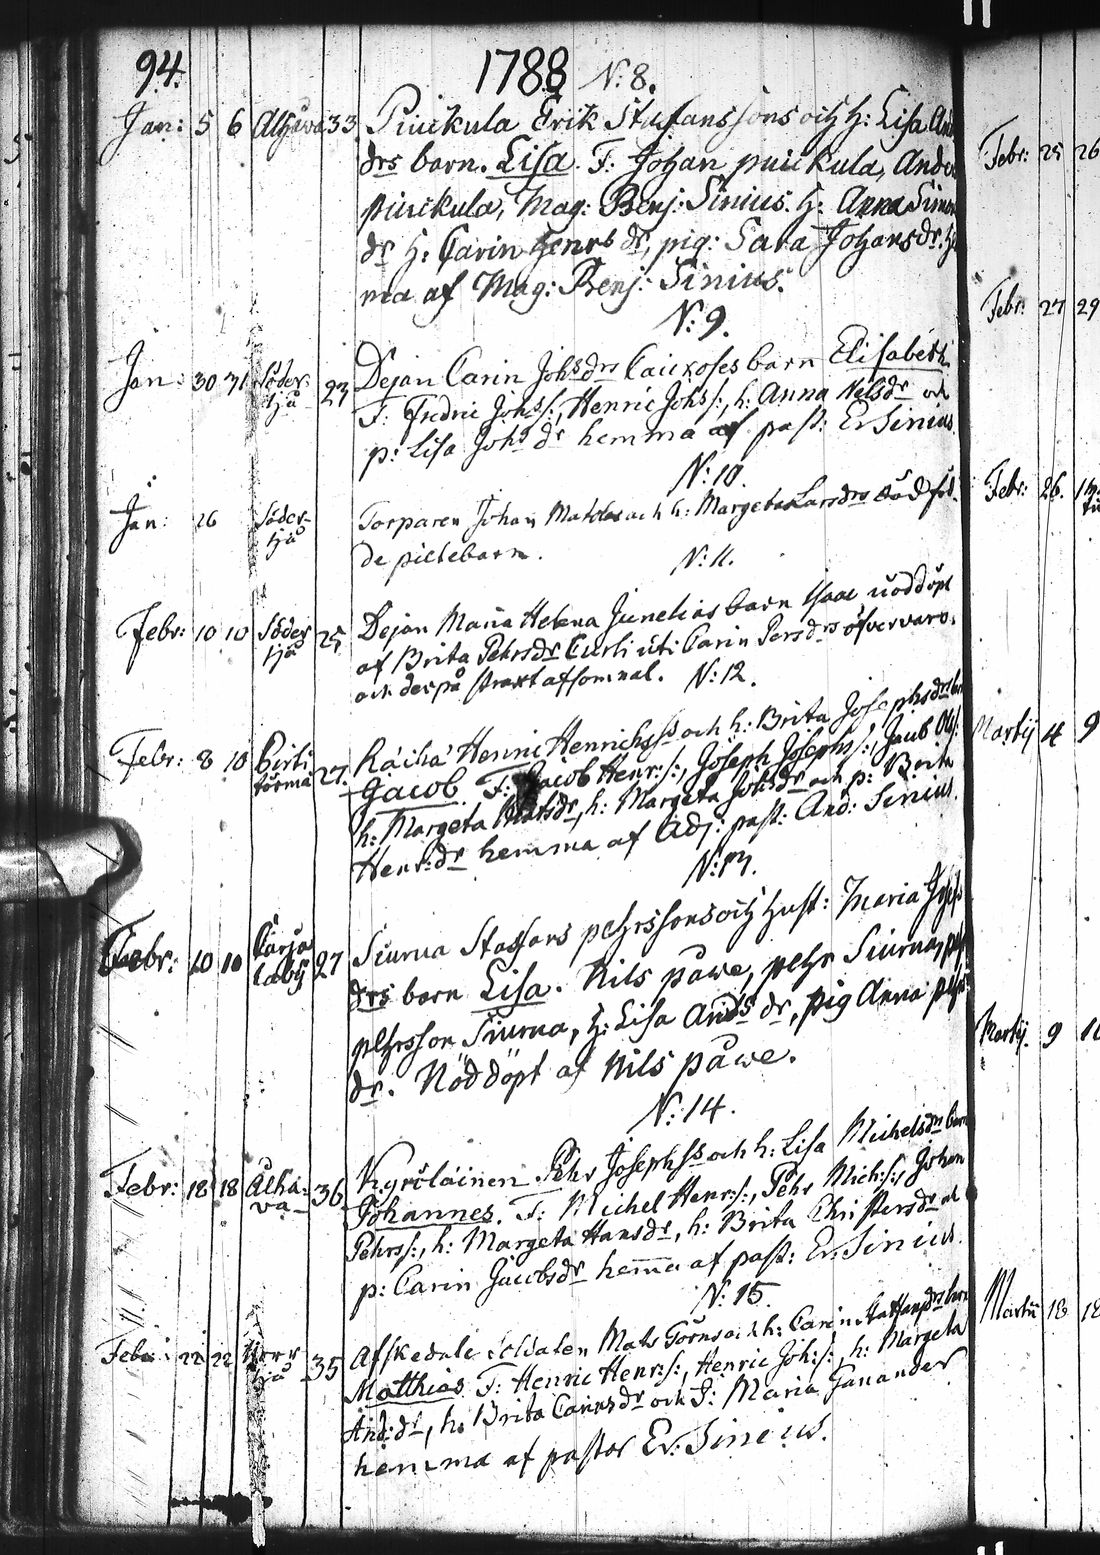 94.
1788
N: 8.
Jan: 5 6 33 Puukula Erik Staffanssons och H: Lisa And
drs barn. Lisa. F: Johan puukula, Ande
puukula, Mag: Benj: Sinius. H: Anna Simon
dr H: Carin Henrs dr, pig: Sara Johansdr. He
ma af Mag: Benj: Sinius.
N: 9.
Jan: 30 31 Söder-
kjä 23 Dejan Carin Johsdrs barn Elisabeth
F: Fredric Johs/:, Henric Johs/:, h: Anna Nilsdr och
p: Lisa Johs dr hemma af past: Er Sinius.
N: 10.
Jan: 26 Söder-
kjä Torparen Johan Mats och h: Margeta Larsdrs död föd-
de piltebarn.
N: 11.
Febr: 10 10 Söder
kjä 25 Dejan Maria Helena Junelias barn Isaac nöddöpt
af Brita Pehrsdr Carin Persdrs öfvervaro.
och derpå straxt afsomnat.
N: 12.
Febr: 8 10 27. Räihä Henric Henrichs/s och h: Brita Josephsdrs bar
Jacob. F: Jacob Henr:/:, Joseph Josephs/:, Jacob
h: Margeta Matsdr, h: Margeta Johsdr och p: Brita
Henr:dr hemma af Adj: past: And: Sinius.
N: 13.
Febr: 10 10 Karja
laby 27 Siurua Staffans pehrssons och Hust: Maria Josefs
drs barn Lisa. Nils påwe, pehr Siurua,
pehrsson Siurua, H: Lisa Ands dr, pig Anna pehrs
dr. Nöddöpt af Nils påwe.
N: 14.
Febr: 18 18 Alha-
va 36 Kyröläinen Pehr Josephs/s och h: Lisa Michelsdrs barn
Johannes. F: Michel Henr:/:, Pehr Mich:/:, Johan
Pehrs/:, h: Margeta Hansdr, h: Brita Christersdr och
p: Carin Jacobsdr hemma af past: Er: Sinius.
N: 15.
Febr: 22 22 35 Afskedade Soldaten Mats Törns och h: Carin Staffansdrs barn
Matthias. F: Henric Henr:/:, Henric Joh:/:, h: Margeta
And:dr, h: Brita dr och J: Maria Ganander
hemma af pastor Er: Sinius.
Febr: 25 26
Febr: 27 29
Febr: 26.
Martij 4 9
Martij. 9
Martii 18 18